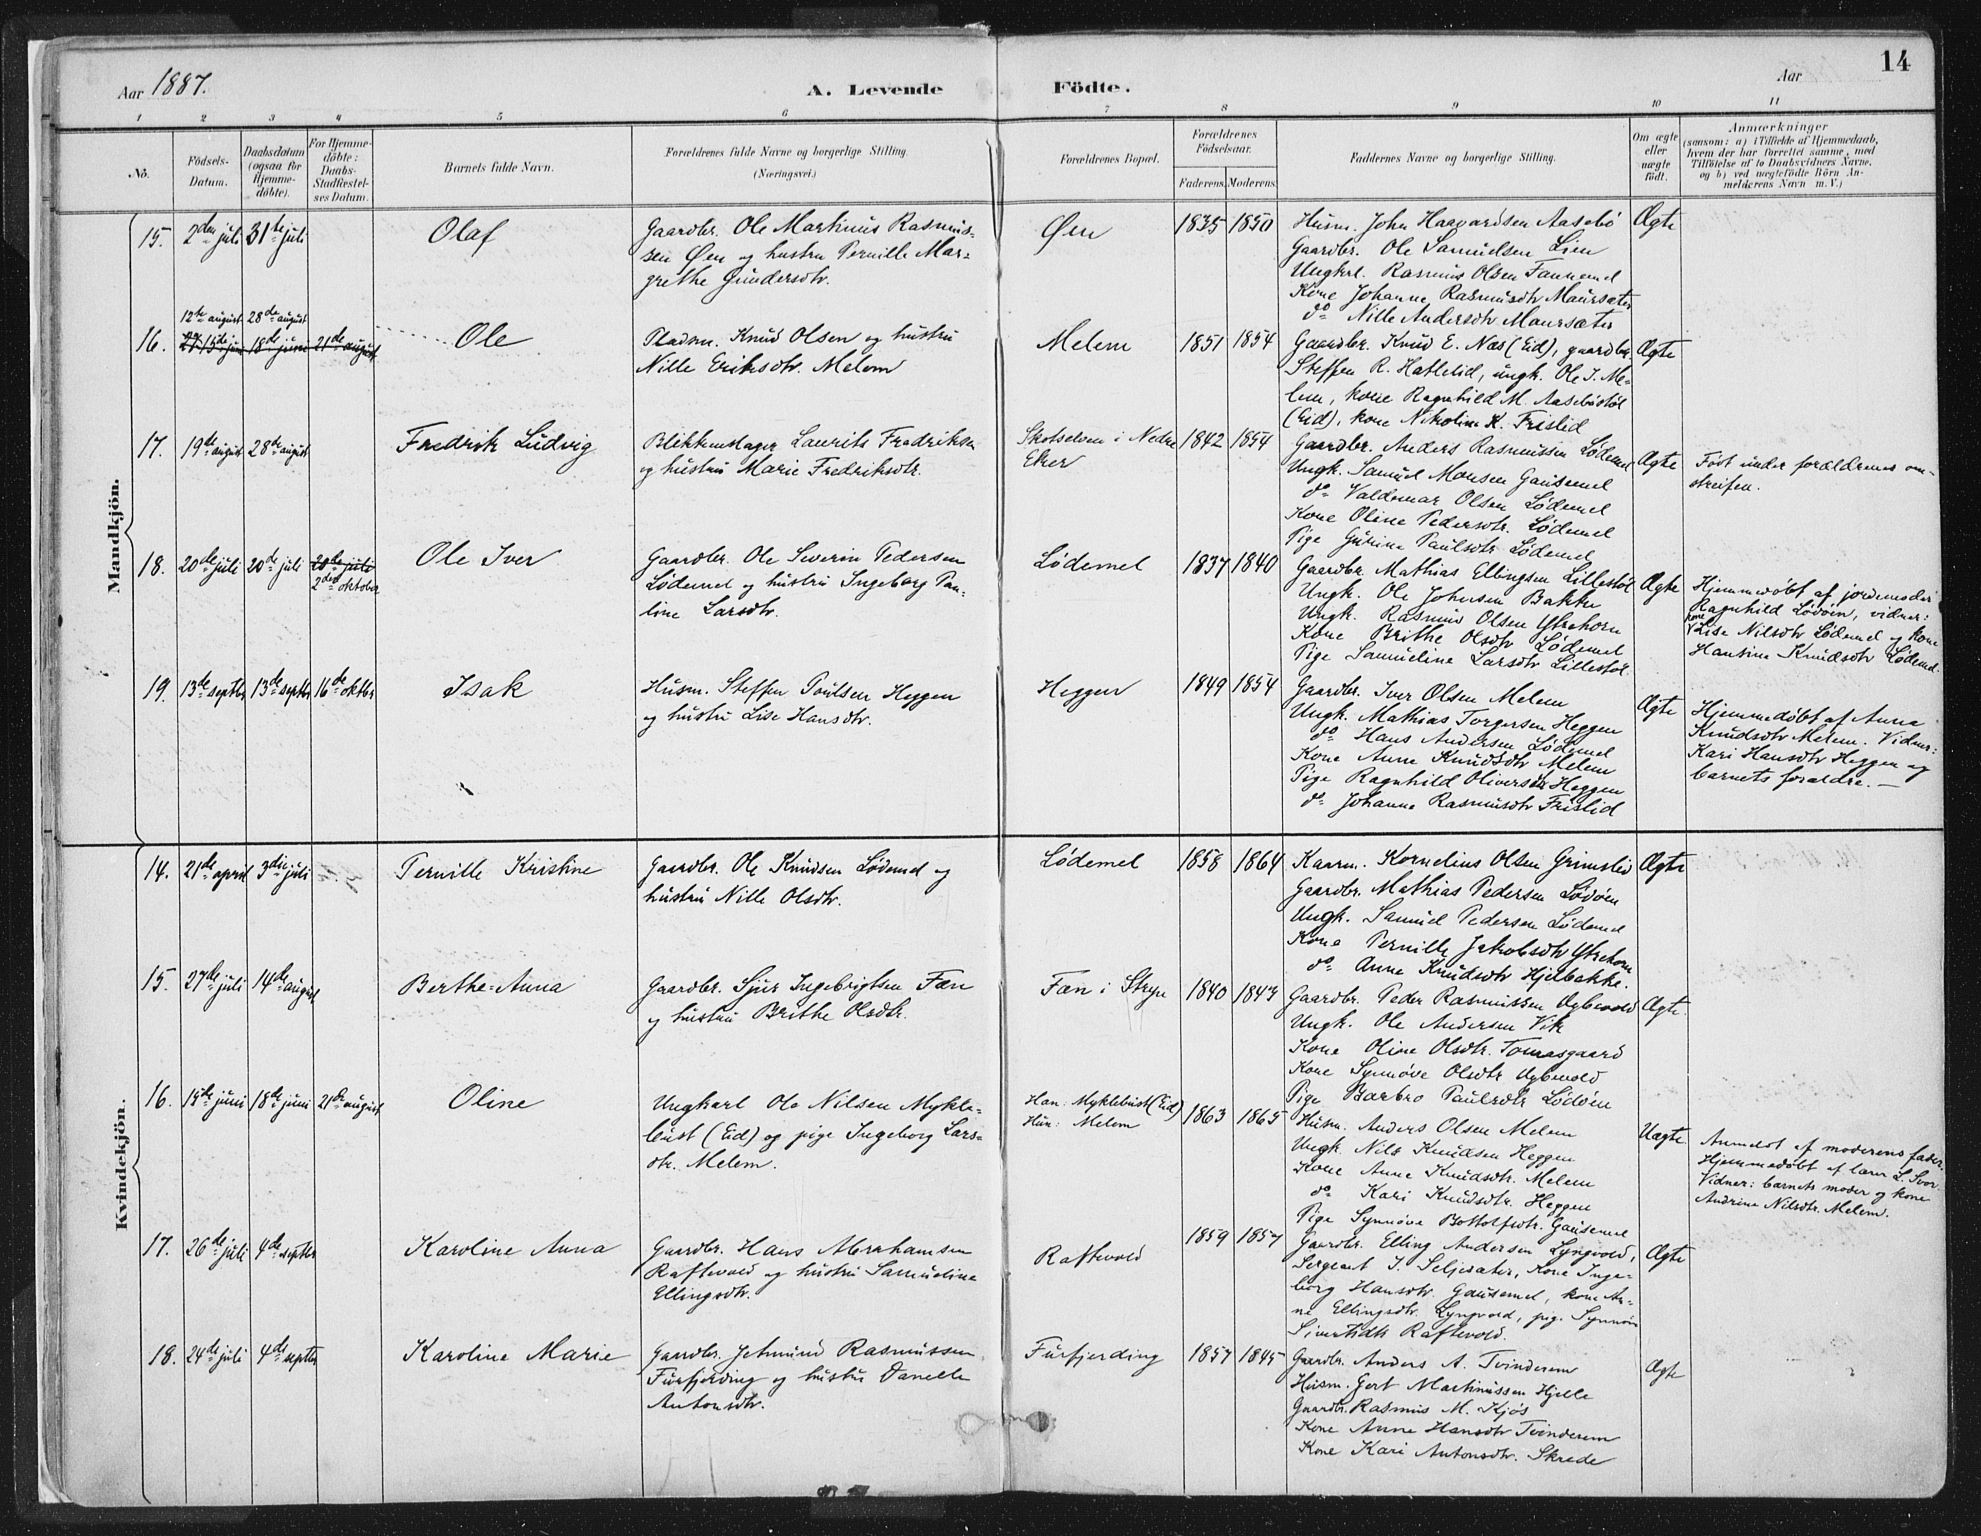 14
Aar 1887.
A. Levende Födte.
Aar
1 2 3 4 5 6 7 8 9 10 11
No.
Födsels-
Datum.
Daabsdatum
(ogsaa for
Hjemme-
döbte).
For Hjemme-
döbte:
Daabs-
Stadfæstel-
ses Datum.
Barnets fulde Navn.
Forældrenes fulde Navne og borgerlige Stilling.
(Næringsvei.)
Forældrenes Bopæl.
Forældrenes
Födselsaar.
Faderens. Moderens.
Faddernes Navne og borgerlige Stilling.
Om ægte
eller
uægte
födt.
Anmærkninger
(saasom: a) i Tilfælde af Hjemmedaab,
hvem der har forrettet samme, med
Tilföielse af to Daabsvidners Navne,
og b) ved uægtefödte Börn An-
melderens Navn m. V.)
Mandkjön.
15. 2den juli 31te juli Olaf
Gaardbr. Ole Martinus Rasmus-
sen Øen og hustru Pernille Mar-
grethe Gundersdtr.
Øen 1835 1850
Husm. John Haavardsen Aasebö
Gaardbr. Ole Samuelsen Lien
Ungkrl. Rasmus Olsen Fannemel
Kone Johanne Rasmusdtr Maursæter
do Nille Andersdtr Maursæter
Ægte
12te august 28de august
16. 15de juni 18de juni 21de august Ole
Pladsm. Knud Olsen og hustru
Nille Eriksdtr. Melem
Melem 1851 1854
Gaardbr. Knud E. Næs (Eid), gaardbr.
Steffen R. Hatlelid, ungk. Ole I. Me-
lem, kone Ragnhild M. Aasebøstøl
(Eid), kone Nikoline K. Frislid
Ægte
17. 19de august 28de august Fredrik Ludvig
Blikkenslager Laurits Fredriksen
og hustru Marie Fredriksdtr.
Skotselven i Nedre
Eker
1842 1854
Gaardbr. Anders Rasmussen Lødemel
Ungk. Samuel Monsen Gausemel
do Valdemar Olsen Lødemel
Kone Oline Pedersdtr. Lødemel
Pige Gurine Paulsdtr Lødemel
Ægte
Født under forældrenes om-
streifen.
18. 20de juli 20de juli 20de juli
2den oktober
Ole Iver
Gaardbr. Ole Severin Pedersen
Lødemel og hustru Ingeborg Pau-
line Larsdtr.
Lødemel 1837 1840
Gaardbr. Mathias Ellingsen Lillestøl
Ungk. Ole Johnsen Bakke
Ungk. Rasmus Olsen Ytrehorn
Kone Brithe Olsdtr Lødemel
Pige Samueline Larsdtr Lillestøl
Ægte
Hjemmedøbt af jordemoder
Ragnhild Lødøen, vidner:
kone
Lise Nilsdtr Lødemel og kone
Hansine Knudsdtr Lødemel
19. 13de septbr 13de septbr 16de oktbr Isak
Husm. Steffen Poulsen Heggen
og hustru Lise Hansdtr.
Heggen 1849 1854
Gaardbr. Iver Olsen Melem
Ungk. Mathias Torgersen Heggen
do Hans Andersen Lødemel
Kone Anne Knudsdtr Melem
Pige Ragnhild Oliversdtr Heggen
do Johanne Rasmusdtr Frislid
Ægte
Hjemmedøbt af Anna
Knudsdtr Melem. Vidner:
Kari Hansdtr Heggen og
barnets forældre.
Kvindekjön.
14. 21de april 3die juli Pernille Kristine
Gaardbr. Ole Knudsen Lødemel og
hustru Nille Olsdtr.
Lødemel 1858 1864
Kaarm. Kornelius Olsen Grimslid
Gaardbr. Mathias Pedersen Lødøen
Ungk. Samuel Pedersen Lødemel
Kone Pernille Jakobsdtr Ytrehorn
do Anne Knudsdtr Hjelbakke.
Ægte
15. 27de juli 14de august Berthe-Anna
Gaardbr. Sjur Ingebrigtsen Fæn
og hustru Brithe Olsdtr.
Fæn i Stryn 1840 1843
Gaardbr. Peder Rasmussen Aybevold
Ungk. Ole Andersen Vik
Kone Oline Olsdtr. Tomasgaard
Kone Synnøve Olsdtr Aybevold
Pige Barbro Paulsdtr Lødøen
Ægte.
16. 15de juni 18de juni 21de august Oline
Ungkarl Ole Nilsen Mykle-
bust (Eid) og pige Ingeborg Lars-
dtr. Melem.
Han: Myklebust (Eid)
Hun: Melem
1863 1865
Husm. Anders Olsen Melem
Ungk. Nils Knudsen Heggen
Kone Anne Knudsdtr. Melem
do Kari Knudsdtr. Heggen
Pige Synnøve Bottolfsdtr. Gausemel
Uægte
Anmeldt af moderens fader.
Hjemmedøbt af lærer L. Svor.
Vidner: barnets moder og kone
Andrine Nilsdtr. Melem.
17. 26de juli 4de septbr Karoline Anna
Gaardbr. Hans Abrahamsen
Raftevold og hustru Samueline
Ellingsdtr.
Raftevold 1859 1857
Gaardbr. Elling Andersen Lyngvold,
Sergeant I. Seljesæter, Kone Inge-
borg Hansdtr. Gausemel, kone An-
ne Ellingsdtr. Lyngvold, pig. Synnøv
Sivertsdtr Raftevold.
Ægte
18. 24de juli 4de septbr Karoline Marie
Gaardbr. Jetmund Rasmussen
Furfjerding og hustru Danelle
Antonsdtr.
Furfjerding 1857 1845
Gaardbr. Anders A. Tvinderem
Husm. Gert Martinussen Hjelle
Gaardbr. Rasmus M. Kjøs
Kone Anne Hansdtr Tvinderem
Kone Kari Antonsdtr. Skrede
Ægte